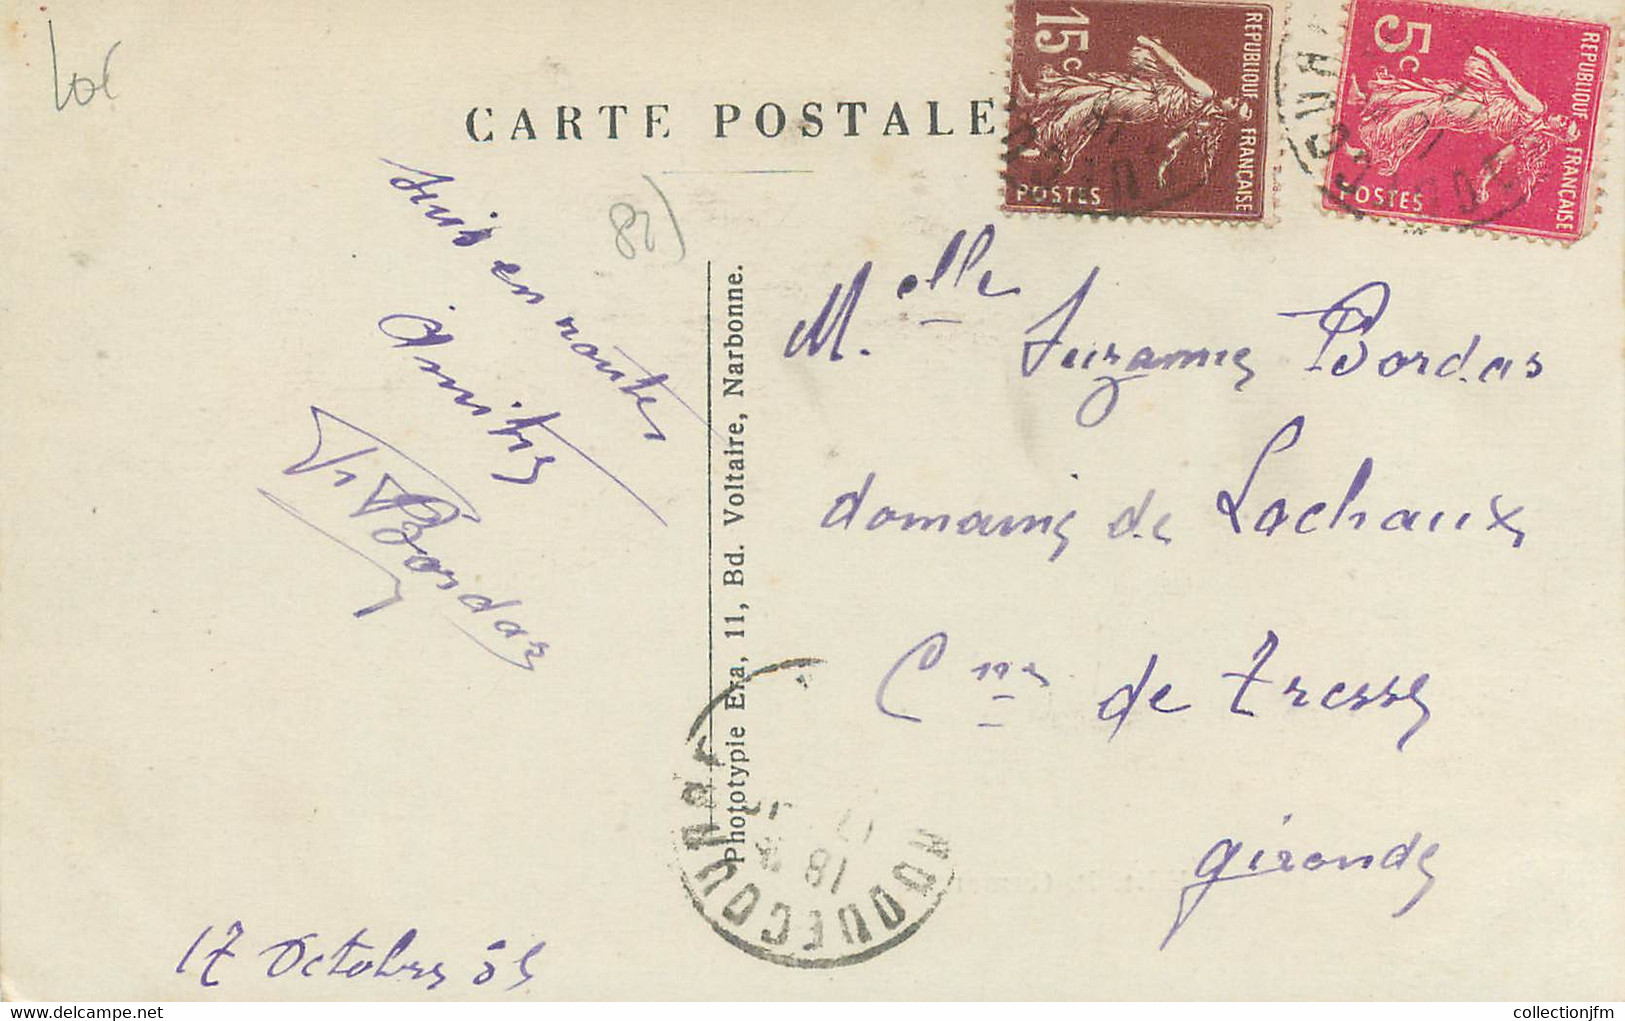 Lot
CARTE POSTALE
15c
REPUBLIQUE FRANÇAISE
POSTES
5c
REPUBLIQUE FRANÇAISE
POSTES
(82)
suis en routes
Amitiés
Bordas
Phototypie Era, 11, Bd. Voltaire, Narbonne.
Melle Suzanne Bordas
domaine de Lachaux
Cne de Tresses
gironde
ROQUECOURBE
18
17 Octobre 35
collectionjfm